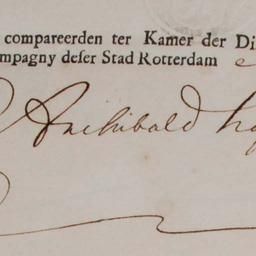 compareerden ter Kamer der Di
mpagny deser Stad Rotterdam
Archibald